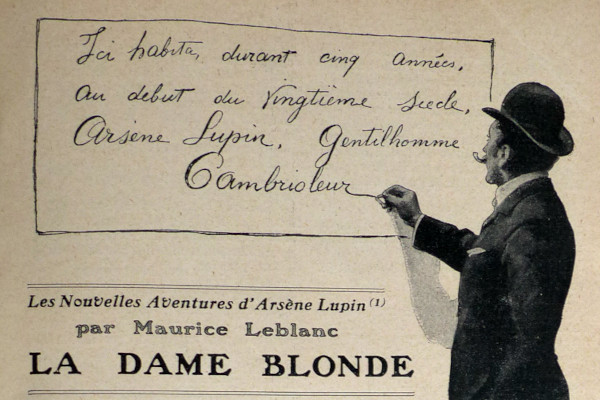 Ici habita, durant cinq années,
au début du vingtième siècle,
Arsène Lupin, Gentilhomme
Cambrioleur
Les Nouvelles Aventures d'Arsène Lupin (1)
par Maurice Leblanc
LA DAME BLONDE